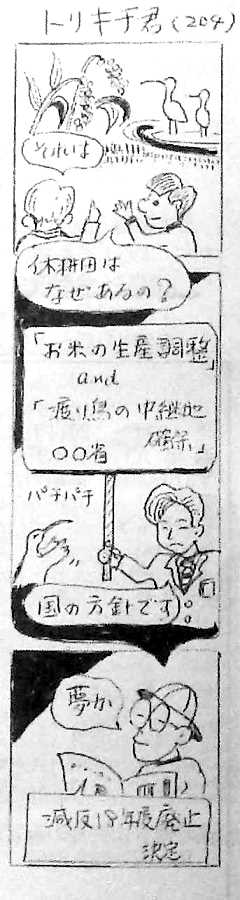 トリキチ君(204)
それは
休耕田は
なぜあるの?
「お米の生産調整」
and
「渡り鳥の中継地
確保」
〇〇省
パチパチ
国の方針です
夢か
減反18年度廃止
決定